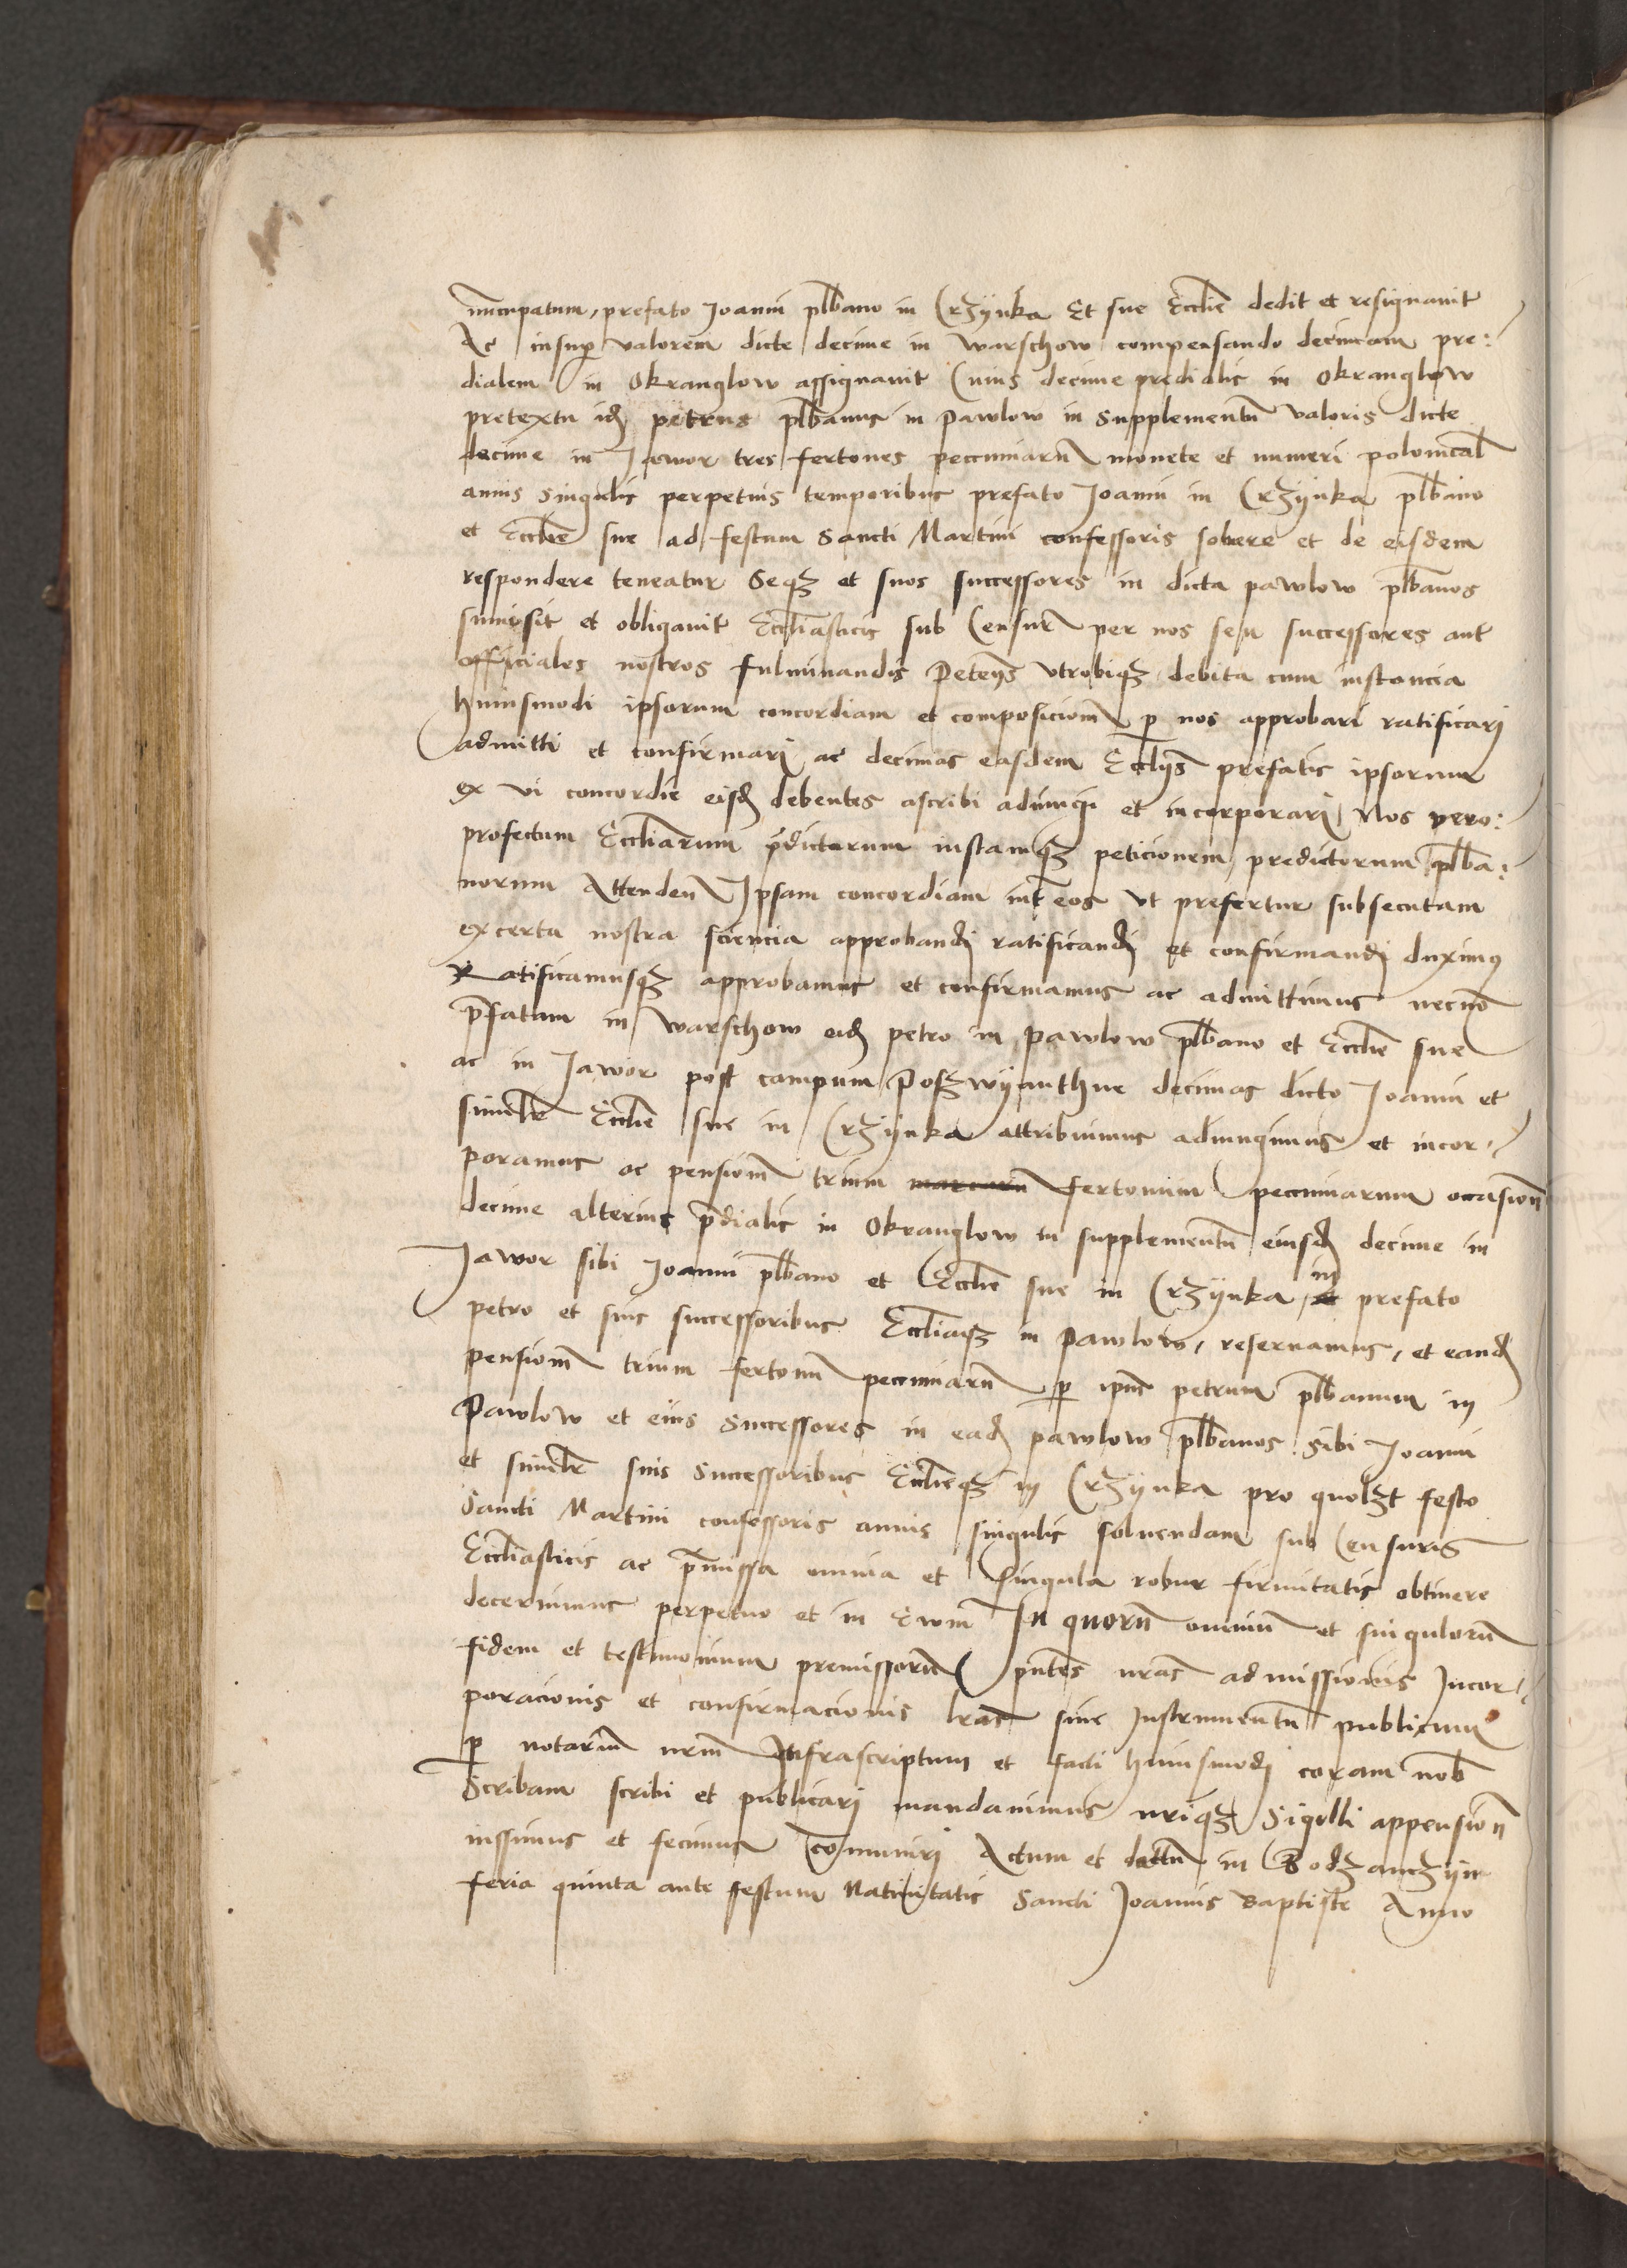 nuncupatum, prefato Joanni plbano in Crzijnka Et sue Ecclie dedit et resignauit
Ac insup valorem dicte decime in Warschow compensando decimam pre:
dialem in Okranglow assignauit Cuius decime predialis in Okranglow
pretextu idem petrus plbanus in Pawlow in Supplementu valoris dicte
decime in Jawor tres fertones peccuniaru monete et numeri polonical
annis singulis perpetuis temporibus prefato Joanni in Crzijnka plbano
et Ecclie sue ad festum Sancti Martini confessoris soluere et de eisdem
respondere teneatur Seqz et suos successores in dicta pawlow plbanos
summisit et obligauit Eccliasticis sub Censur per nos seu successores aut
officiales nostros fulminandis Peteñs vtrobiqz debita cum instancia
huiusmodi ipsorum concordiam et composicionem p nos approbari ratificarj
admitti et confirmarj ac decimas easdem Eccliis prefatis ipsorum
ex vi concordie eisd debentes ascribi adiungi et incorporarj Nos vero:
profectum Eccliarum pdictorum instamqz peticionem predictorum plba:
norum Attenden Ipsam concordiam int eos vt prefertur subsecutam
ex certa nostra sciencia approband ratificand et confirmand duximus
Ratificamusqz approbamus et confirmamus ac admittimus necno
pfatam in Warschow eid petro in pawlow plbano et Ecclie sue
ac in Jawor post campum Poszwijanthne decimas dicto Joanni et
similr Ecclie sue in Crzijnka attribuimus adiungimus et incor-
poramus ac pensionem trium marcaru fertonum peccuniarum occasion
decime alterius pdialis in Okranglow in supplementu eiusd decime in
Jawor sibi Joanni plbano et Ecclie sue in Crzijnka, in prefato
petro et suis successoribus Eccliaqz in pawlow, reseruamus, et eand
pensionem trium fertonu peccuniaru p ipm petrum plbanum in
Pawlow et eius Successores in ead pawlow plbanos Sibi Joanni
et similr suis Successoribus Ecclieqz in Crzijnka pro quolzt festo
Sancti Martini confessoris annis singulis soluendam sub Censuris
Eccliasticis ac pmissa omnia et singula robur firmitatis obtinere
decernimus perpetuo et in Ewm In quoru omniu et singuloru
fidem et testimonium premissoru pntes nras admissionis Incor-
poracionis et confirmacionis lras siue Instrumentu publicum
p notariu nrm Infrascriptum et facti huiusmodi coram nob
Scribam scribi et publicari mandauimus nriqz Sigilli appension
iussimus et fecimus comuniri Actum et dattu in Bodzanczijn
feria quinta ante festum Natiuitatis Sancti Joannis Baptiste Anno